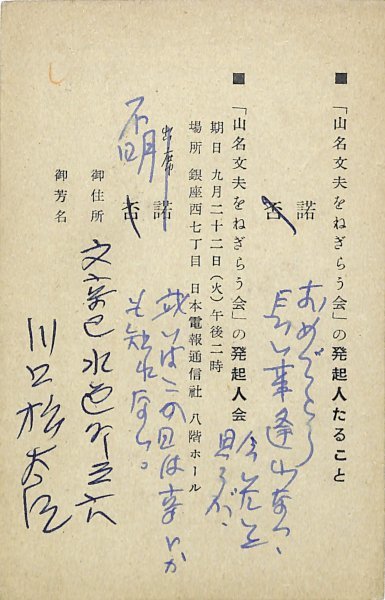 ■「山名文夫をねぎらう会」の発起人たること
諾
否
おめでとう
長い事逢わない、
■「山名文夫をねぎらう会」の発起人会
期日 九月二十二日(火)午後二時
場所 銀座西七丁目 日本電報通信社 八階ホール
諾
否
出席
不明
或いはこの日は
も知れない。
御住所 文京区水道
御芳名 川口松太郎